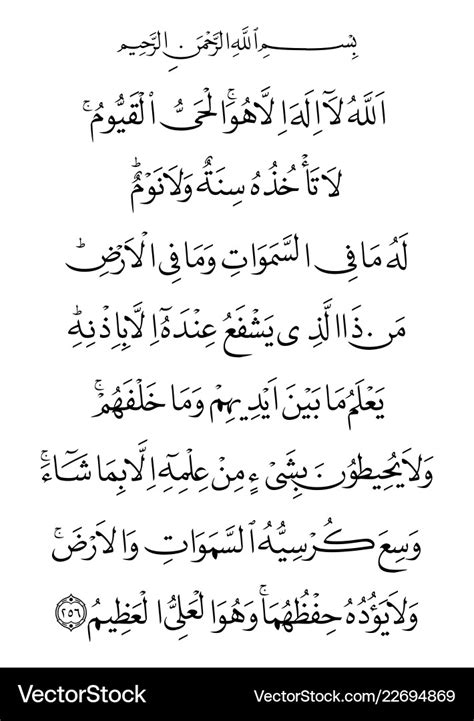 بِسْمِ ٱللَّهِ الرَّحْمَنِ الرَّحِيمِ
اَللَّهُ لَآ اِلَهَ اِلَّا هُوَۚ الْحَىُّ ٱلْقَيُّومُۚ
لَا تَأْخُذُهُ سِنَةٌ وَلَا نَوْمٌؕ
لَهُ مَا فِى السَّمَوَاتِ وَمَا فِى الْاَرْضِؕ
مَنْ ذَا الَّذِى يَشْفَعُ عِنْدَهُٓ اِلَّا بِاِذْنِهِؕ
يَعْلَمُ مَا بَيْنَ اَيْدِيهِمْ وَمَا خَلْفَهُمْۚ
وَلَا يُحِيطُونَ بِشَىْءٍ مِنْ عِلْمِهِٓ اِلَّا بِمَا شَآءَۚ
وَسِعَ كُرْسِيُّهُ ٱلسَّمَوَاتِ وَالْاَرْضَۚ
وَلَا يَؤُدُهُ حِفْظُهُمَاۚ وَهُوَ الْعَلِىُّ الْعَظِيمُ ٢٥٦
VectorStock® VectorStock.com/22694869